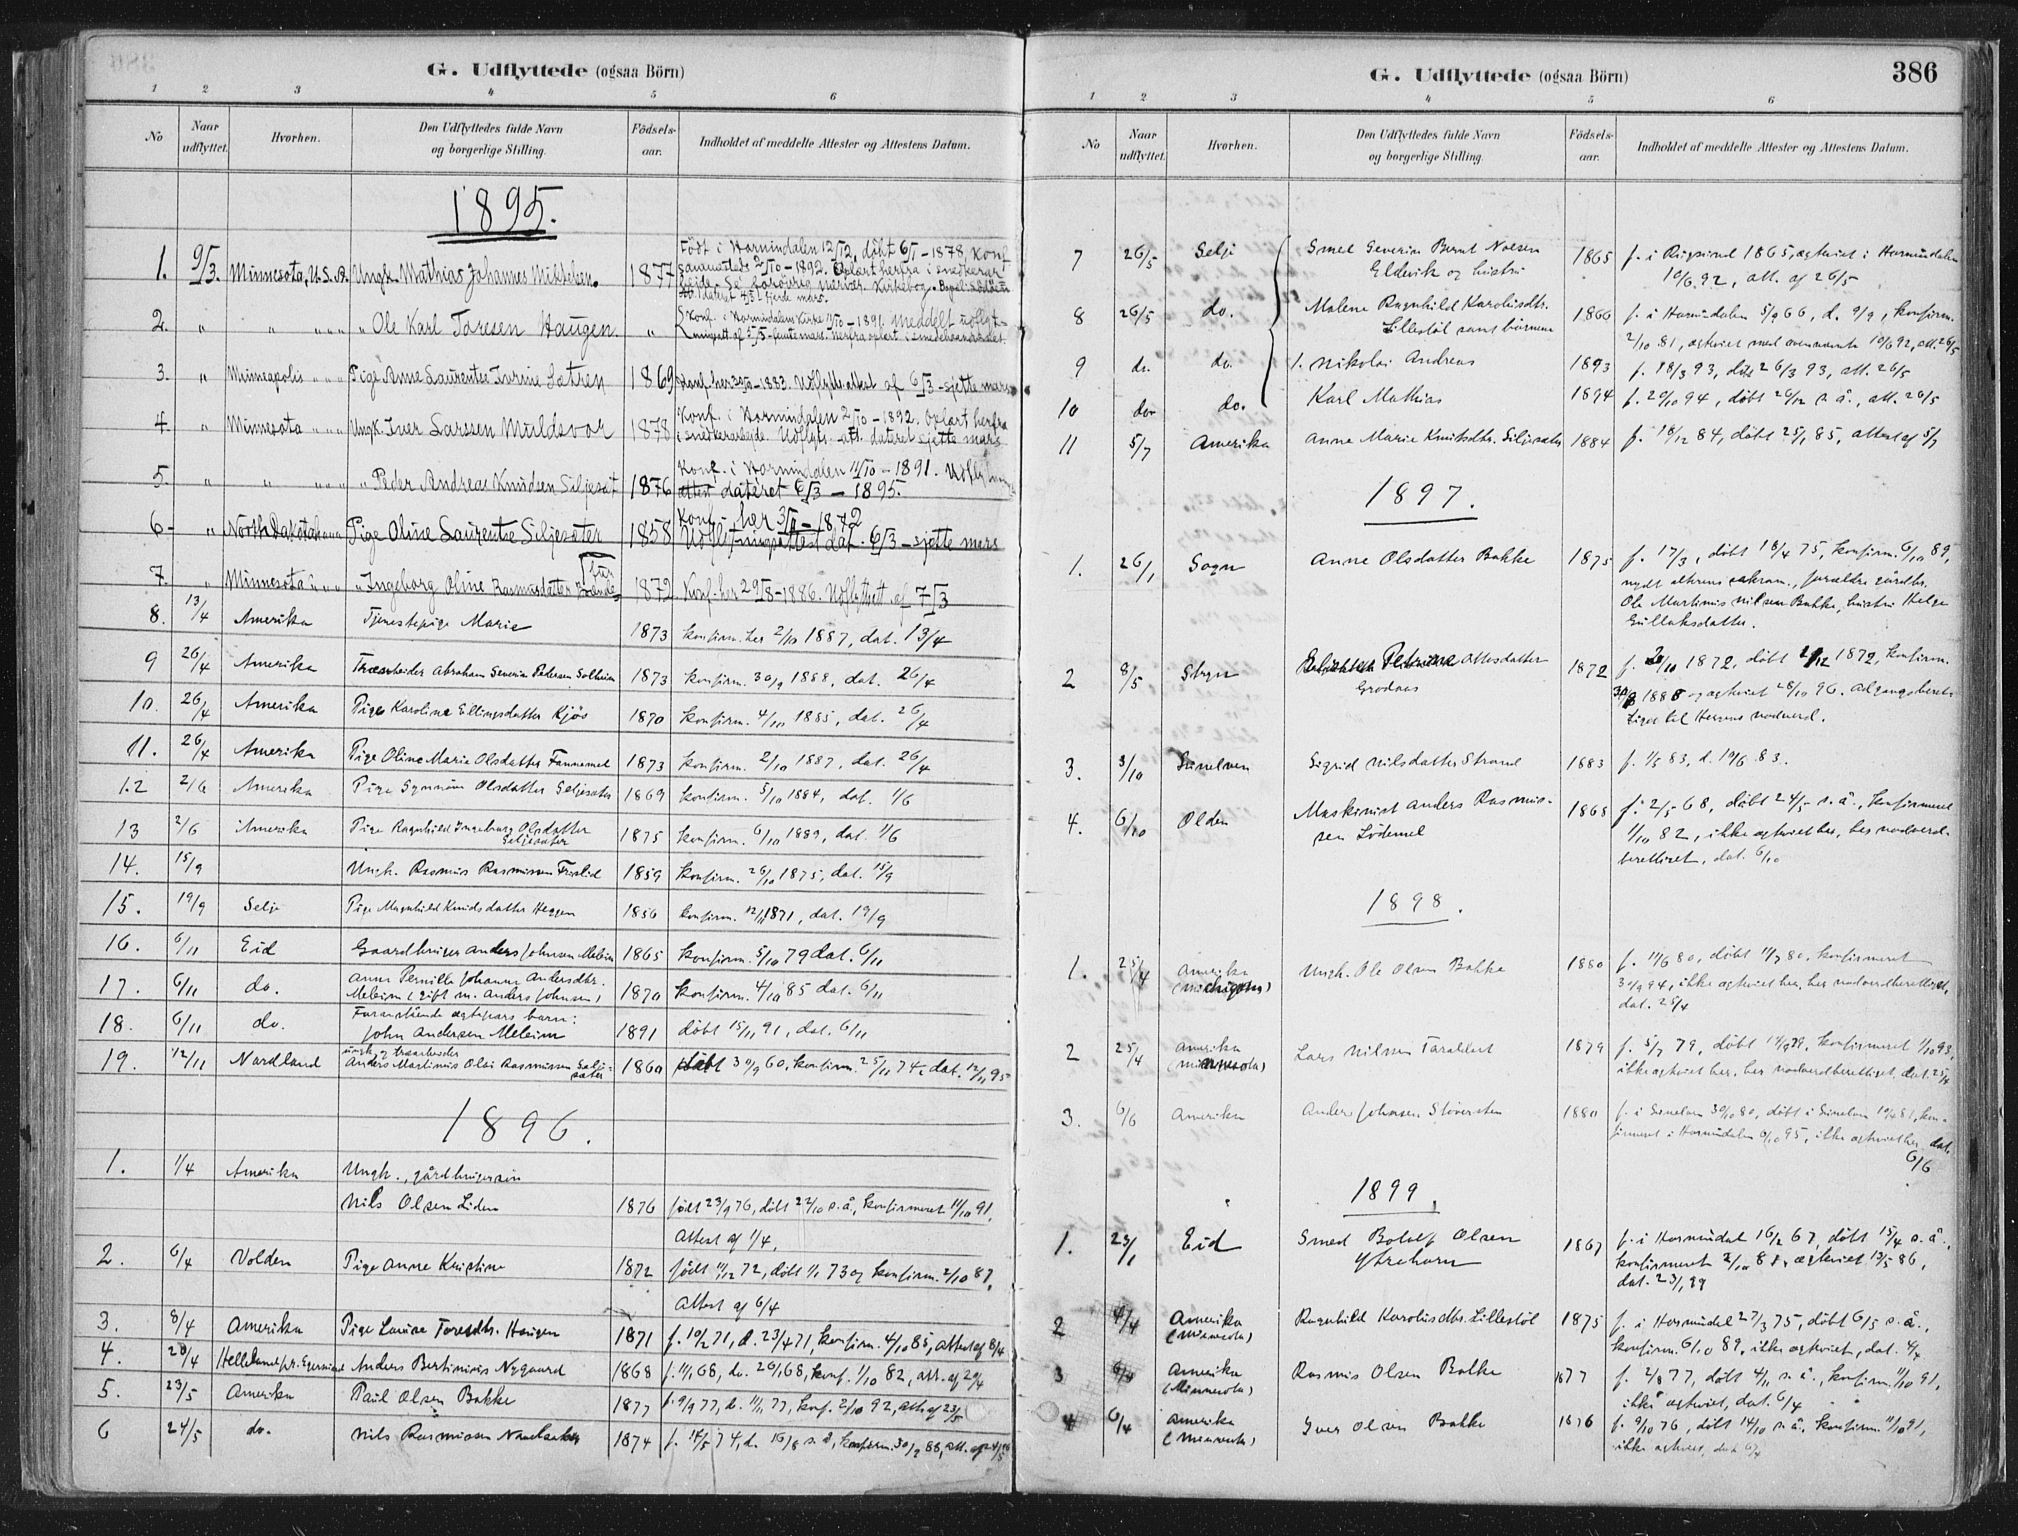 G. Udflyttede (ogsaa Börn)
1 2 3 4 5 6
No Naar udflyttet. Hvorhen. Den Udflyttedes fulde Navn og borgerlige Stilling. Födsels-aar. Indholdet af meddelte Attester og Attestens Datum.
1895.
Født i Hornindalen 12/12, døbt 6/1 - 1878, Konf.
1. 9/3. Minnesota, U.S.A. Ungk. Mathias Johannes Mikkelsen. 1877 sammesteds 2/10 - 1892. Oplært herfra i snedkerar-
2. " " " " " " Ole Karl Toresen Haugen. " Konf. i Hornindalens Kirke 11/10 - 1891. Meddelt udflyt-
3. " Minneapolis " " " Pige Anne Laurentse Iverine Sætren 1869 Konf. her 30/9 - 1883. Udflytt. attest af 6/3 - sjette mars
4. " Minnesota " " " Ungk. Iver Larssen Muldsvor 1878 Konf. i Hornindalen 2/10 - 1892. Oplært herfra
i snedkerarbejde. Udflytt. att. dateret sjette mars
5. " " " " " " Peder Andreas Knudsen Seljeset 1876 Konf. i Hornindalen 11/10 - 1891. Udflytn.
attest dateret 6/3 - 1895.
6 - " North Dakota Pige Oline Laurentse Seljesæter 1858 Konf. her 3/11 - 1872
Udflytningsattest dat. 6/3 - sjette mars
7. " Minnesota " " " " Ingeborg Oline Rasmusdatter 1872 Konf. her 29/8 - 1886. Udflyttett af 7/3
8. 13/4 Amerika Tjenestepige Marie 1873 konfirm. her 2/10 1887, dat. 13/4
9 26/4 Amerika Træarbeider Abraham Severin Pedersen Solheim 1873 konfirm. 30/9 1888, dat. 26/4
10. 26/4 Amerika Pige Karoline Ellingsdatter Kjøs 1870 konfirm. 4/10 1885, dat. 26/4
11. 26/4 Amerika Pige Oline Marie Olsdatter Fannemel 1873 konfirm. 2/10 1887, dat. 26/4
12 2/6 Amerika Pige Synnøve Olsdatter Seljesæter 1869 konfirm. 5/10 1884, dat. 1/6
13 2/6 Amerika Pige Ragnhild Ingeborg Olsdatter Seljesæter 1875 konfirm. 6/10 1889, dat. 1/6
14. 15/9 Ungk. Rasmus Rasmussen Frislid 1859 konfirm. 26/10 1875, dat. 15/9
15. 19/9 Selje Pige Magnhild Knudsdatter Heggen 1856 konfirm. 12/11 1871, dat. 19/9
16. 6/11 Eid Gaardbruger Anders Johnsen Meleim 1865 konfirm. 5/10 79 dat. 6/11
17. 6/11 do. Anne Pernille Johanne Andersdtr.
Meleim (gift m. Anders Johnsen) 1870 konfirm. 4/10 85 dat. 6/11
18. 6/11 do. Foranstående ægtepars barn:
John Andersen Meleim 1891 døbt 15/11 91, dat. 6/11
19. 12/11 Nordland ungk. træarbeider
Anders Martinus Olai Rasmussen Seljesæter 1860 døbt 30/9 60, konfirm. 25/11 74, dat. 12/11 95
1896.
1. 1/4 Amerika Ungk., gårdbrugersøn
Nils Olsen Liden 1876 født 23/9 76, døbt 22/10 s.å., konfirmeret 11/10 91.
Attest af 1/4.
2. 6/4 Volden Pige Anne Kristine 1872 født 11/12 72, døbt 1/1 73 og konfirm. 2/10 87.
Attest af 6/4
3. 8/4 Amerika Pige Lovise Toresdtr. Haugen 1871 f. 10/2 71, d. 23/4 71, konfirm. 4/10 85, attest af 8/4
4. 20/4 Anders Bertinius Nygaard 1868 konf. 1/10 82, att. af 20/4
5. 23/5 Amerika Paul Olsen Bakke 1877 f. 9/9 77, d. 11/11 77, konf. 2/10 92, att. af 23/5
6 24/5 do. Nils Rasmussen 1874 f. 14/5 74, d. s.å., konfirm. 30/9 88, att. af 24/5
G. Udflyttede (ogsaa Börn) 386
1 2 3 4 5 6
No Naar udflyttet. Hvorhen. Den Udflyttedes fulde Navn og borgerlige Stilling. Födsels-aar. Indholdet af meddelte Attester og Attestens Datum.
7 26/5 Selje Smed Severin Bernt Nilsen
Eldevik og hustru 1865 f. i 1865, ægtviet i Hornindalen
10/6 92, att. af 26/5
8 26/5 do. Malene Ragnhild Karolusdtr.
Lillestöl samt börnene 1866 f. i Hornindalen 5/9 66, d. 9/9, konfirm.
2/10 81, ægtviet med ovennævnte 10/6 92, att. 26/5
9 do. do. 1. Nikolai Andreas 1893 f. 18/3 93, døbt 26/3 93, att. 26/5
10 do. do. Karl Mathias 1894 f. 20/10 94, døbt 26/12 s.å., att. 26/5
11 5/7 Amerika Anne Marie Knutsdtr. Seljesæter 1884 f. 18/12 84, døbt 25/1 85, attest af 5/7
1897.
1. 26/1 Sogn Anne Olsdatter Bakke 1875 f. 17/3, døbt 18/4 75, konfirm. 6/10 89,
nydt alterens sakram., forældre gårdbr.
Ole Martinus Nilsen Bakke, hustru Helge
Gulleksdatter.
2 8/5 Stryn Petrine Ottosdatter
Grodaas 1872 f. 1872, døbt 1872, konfirm.
1888 og ægtviet 28/10 96. Adgangsberet-
tiget til Herrens nadverd.
3. 3/10 Sunelven Sigrid Nilsdatter Strand 1883 f. 1/5 83, d. 19/6 83.
4. 6/10 Olden Maskinist Anders Rasmus-
sen Lödemel 1868 f. 2/5 68, døbt 24/5 s.å., konfirmeret
1/10 82, ikke ægtviet her, her nadverd-
berettiget, dat. 6/10
1898.
1. 25/4 Amerika
(Michigan) Ungk. Ole Olsen Bakke 1880 f. 11/6 80, døbt 11/7 80, konfirmeret
30/9 94, ikke ægtviet her, her nadverdberettiget,
dat. 25/4
2 25/4 Amerika
(Minnesota) Lars Nilsen Taraldset 1879 f. 5/7 79, døbt 14/9 79, konfirmeret 1/10 93,
ikke ægtviet her, her nadverdberettiget, dat. 25/4
3. 6/6 Amerika Anders Johnsen Støversten 1880 f. i Sunelven 30/10 80, døbt i Sunelven 10/4 81, kon-
firmeret i Hornindalen 6/10 95, ikke ægtviet her, dat.
6/6
1899.
1. 23/1 Eid Smed Bololf Olsen
Ytrehorn 1867 f. i Hornindal 16/2 67, døbt 15/4 s.å.,
konfirmeret 2/10 81, ægtviet 13/5 86,
dat. 23/1 99
2 4/4 Amerika
(Minnesota) Ragnhild Karolusdtr. Lillestöl 1875 f. i Hornindal 27/3 75, døbt 6/5 s.å.,
konfirm. 6/10 89, ikke ægtviet, dat. 4/4
3 6/4 Amerika
(Minnesota) Rasmus Olsen Bakke 1877 f. 2/8 77, døbt 4/11 s.å., konfirm. 11/10 91,
ikke ægtviet, dat. 6/4
4 6/4 Amerika
(Minnesota) Iver Olsen Bakke 1876 f. 9/10 76, døbt 14/10 s.å., konfirm. 11/10 91,
ikke ægtviet, dat. 6/4